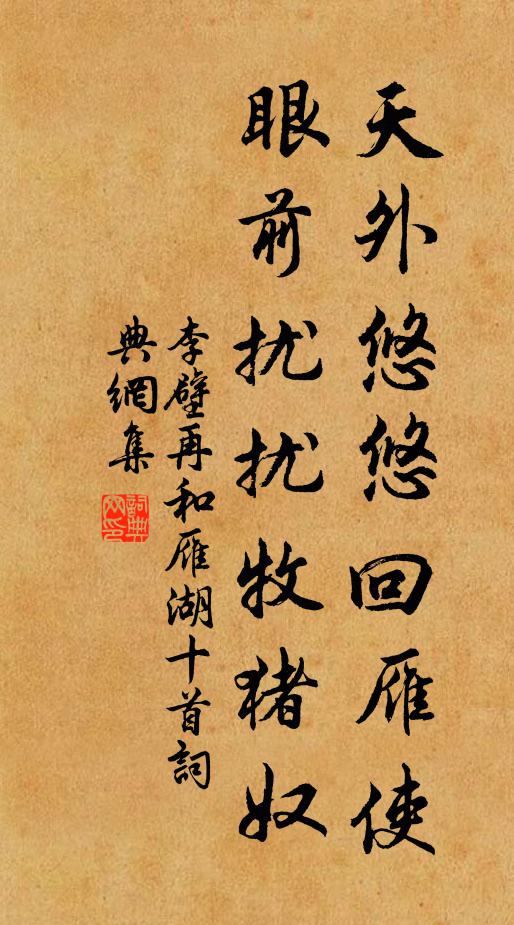 天外悠悠回雁使
眼前扰扰牧猪奴
李壁再和雁湖十首詞
典網集
詞典網印